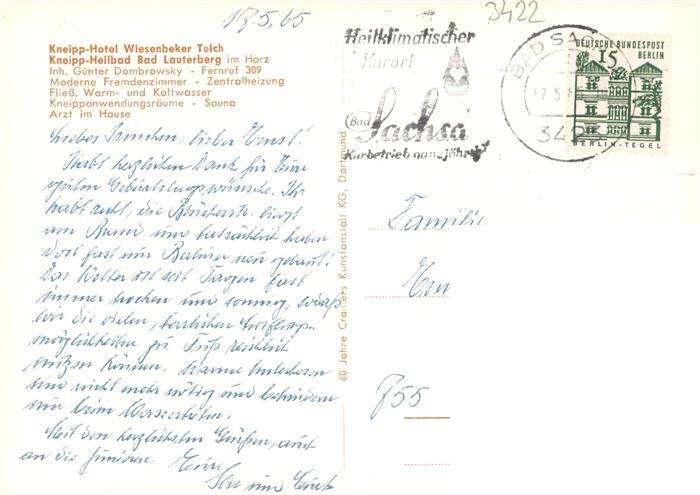 17.5.65
3422
Kneipp-Hotel Wiesenbeker Teich
Kneipp-Heilbad Bad Lauterberg im Harz
Inh. Günter Dombrowsky - Fernruf 309
Moderne Fremdenzimmer - Zentralheizung
Fließ. Warm- und Kaltwasser
Kneippanwendungsräume - Sauna
Arzt im Hause
Heilklimatischer
Kurort
Bad Sachsa
Kurbetrieb ganzjährig
BAD SACHSA
342
DEUTSCHE BUNDESPOST
BERLIN
15
BERLIN-TEGEL
Liebes lieber Ernst!
Habt herzlichen Dank für Eure
guten Geburtstagswünsche. Ihr
habt recht, die liegt
am und tatsächlich haben
dort fast nur Berliner neu gebaut!
Das Wetter ist seit Tagen fast
immer trocken und sonnig, sodaß
wir die vielen, herrlichen Ausflugs-
möglichkeiten zu Fuß reichlich
nutzen können. Warme Unterhosen
sind nicht mehr nötig und behindern
nur beim Wassertreten.
Mit den herzlichsten Grüßen, auch
an die Junioren, Eure
und
60 Jahre Cramers Kunstanstalt KG, Dortmund
Familie
755